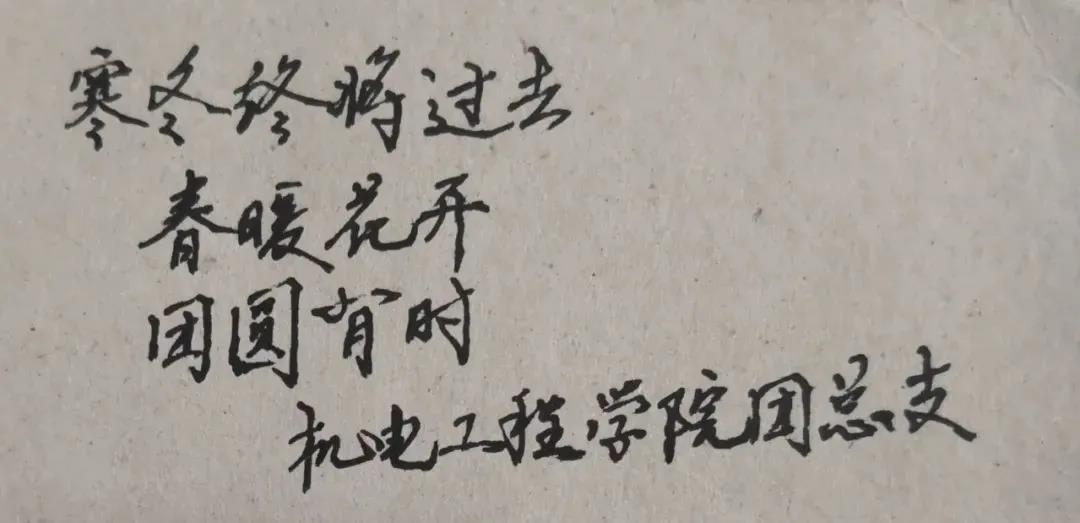 寒冬终将过去
春暖花开
团圆有时
机电工程学院团总支